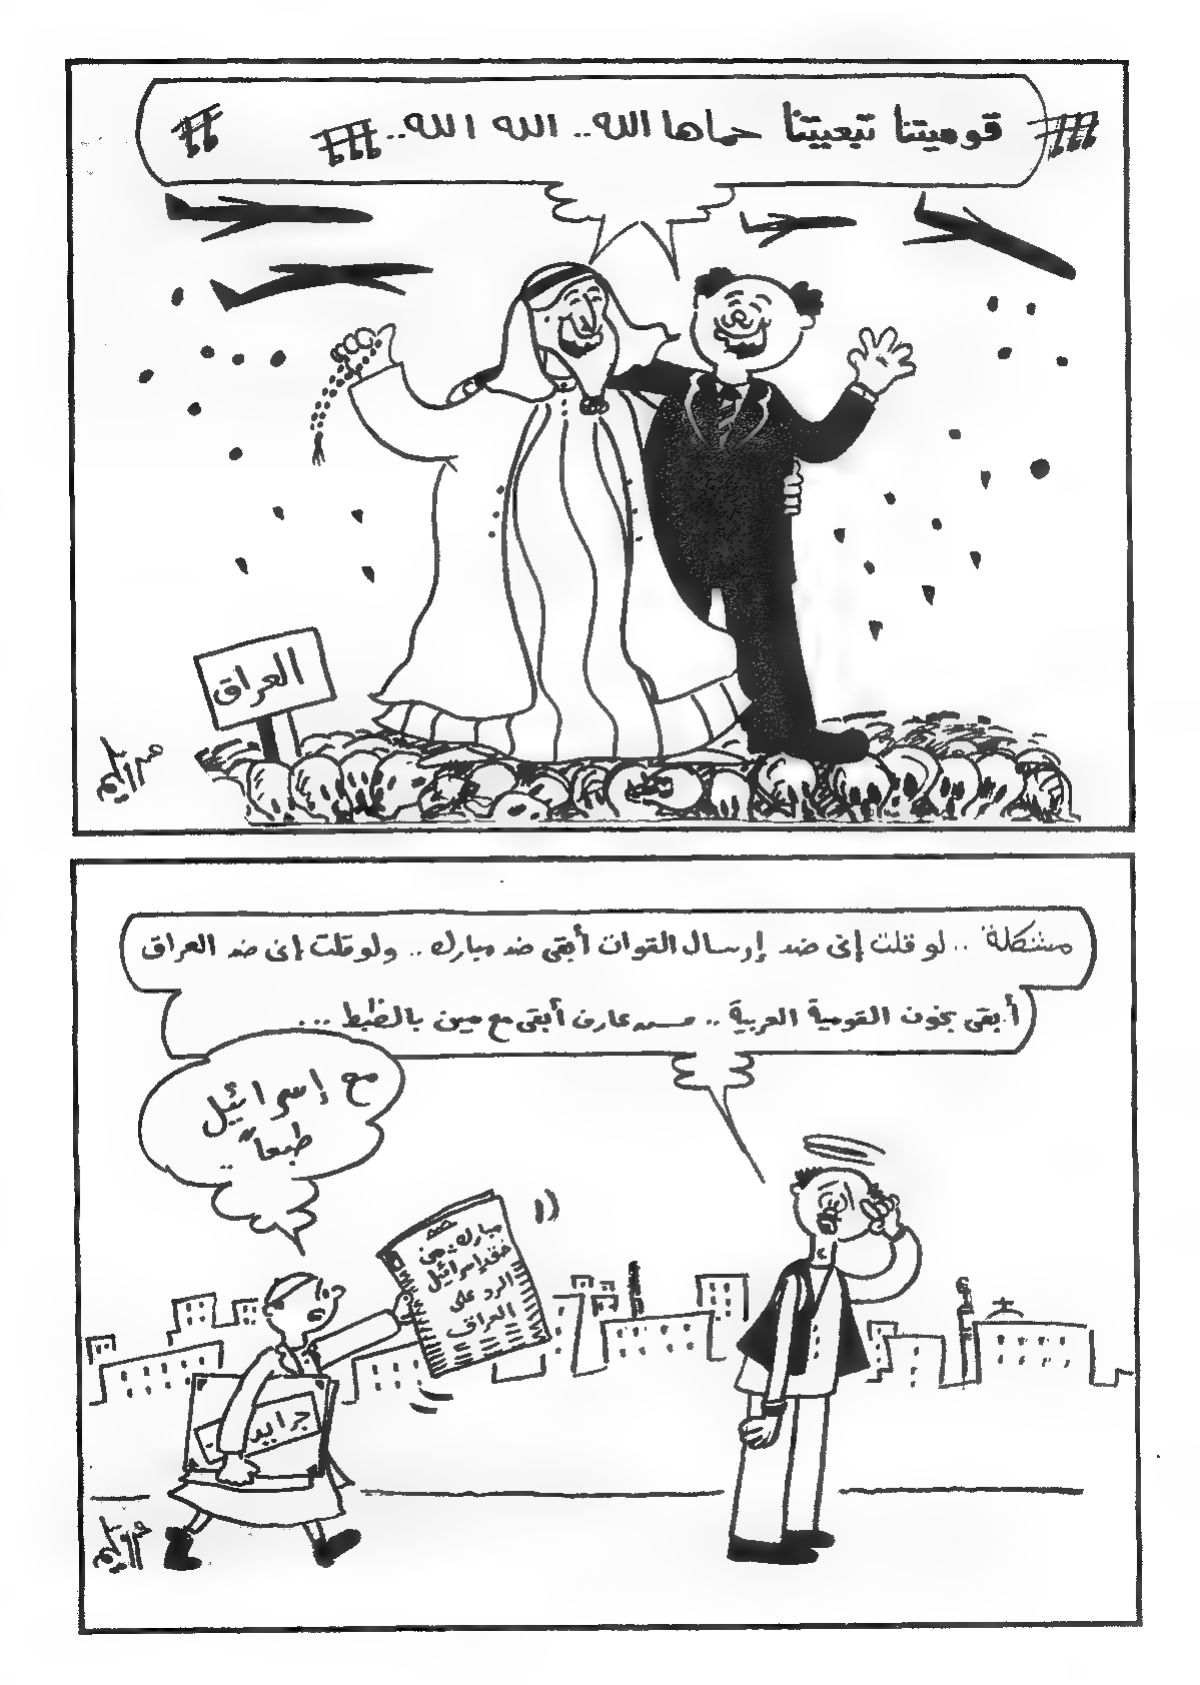 قوميتنا تبعيتنا حماها الله.. الله الله..
العراق
مشكلة .. لو قلت إنى ضد إرسال القوات أبقى ضد مبارك .. ولو قلت إنى ضد العراق
أبقى بخون القومية العربية .. مش عارف أبقى مع مين بالظبط ...
مع إسرائيل
طبعاً ..
مبارك: من
حق إسرائيل
الرد على
العراق
جرايد